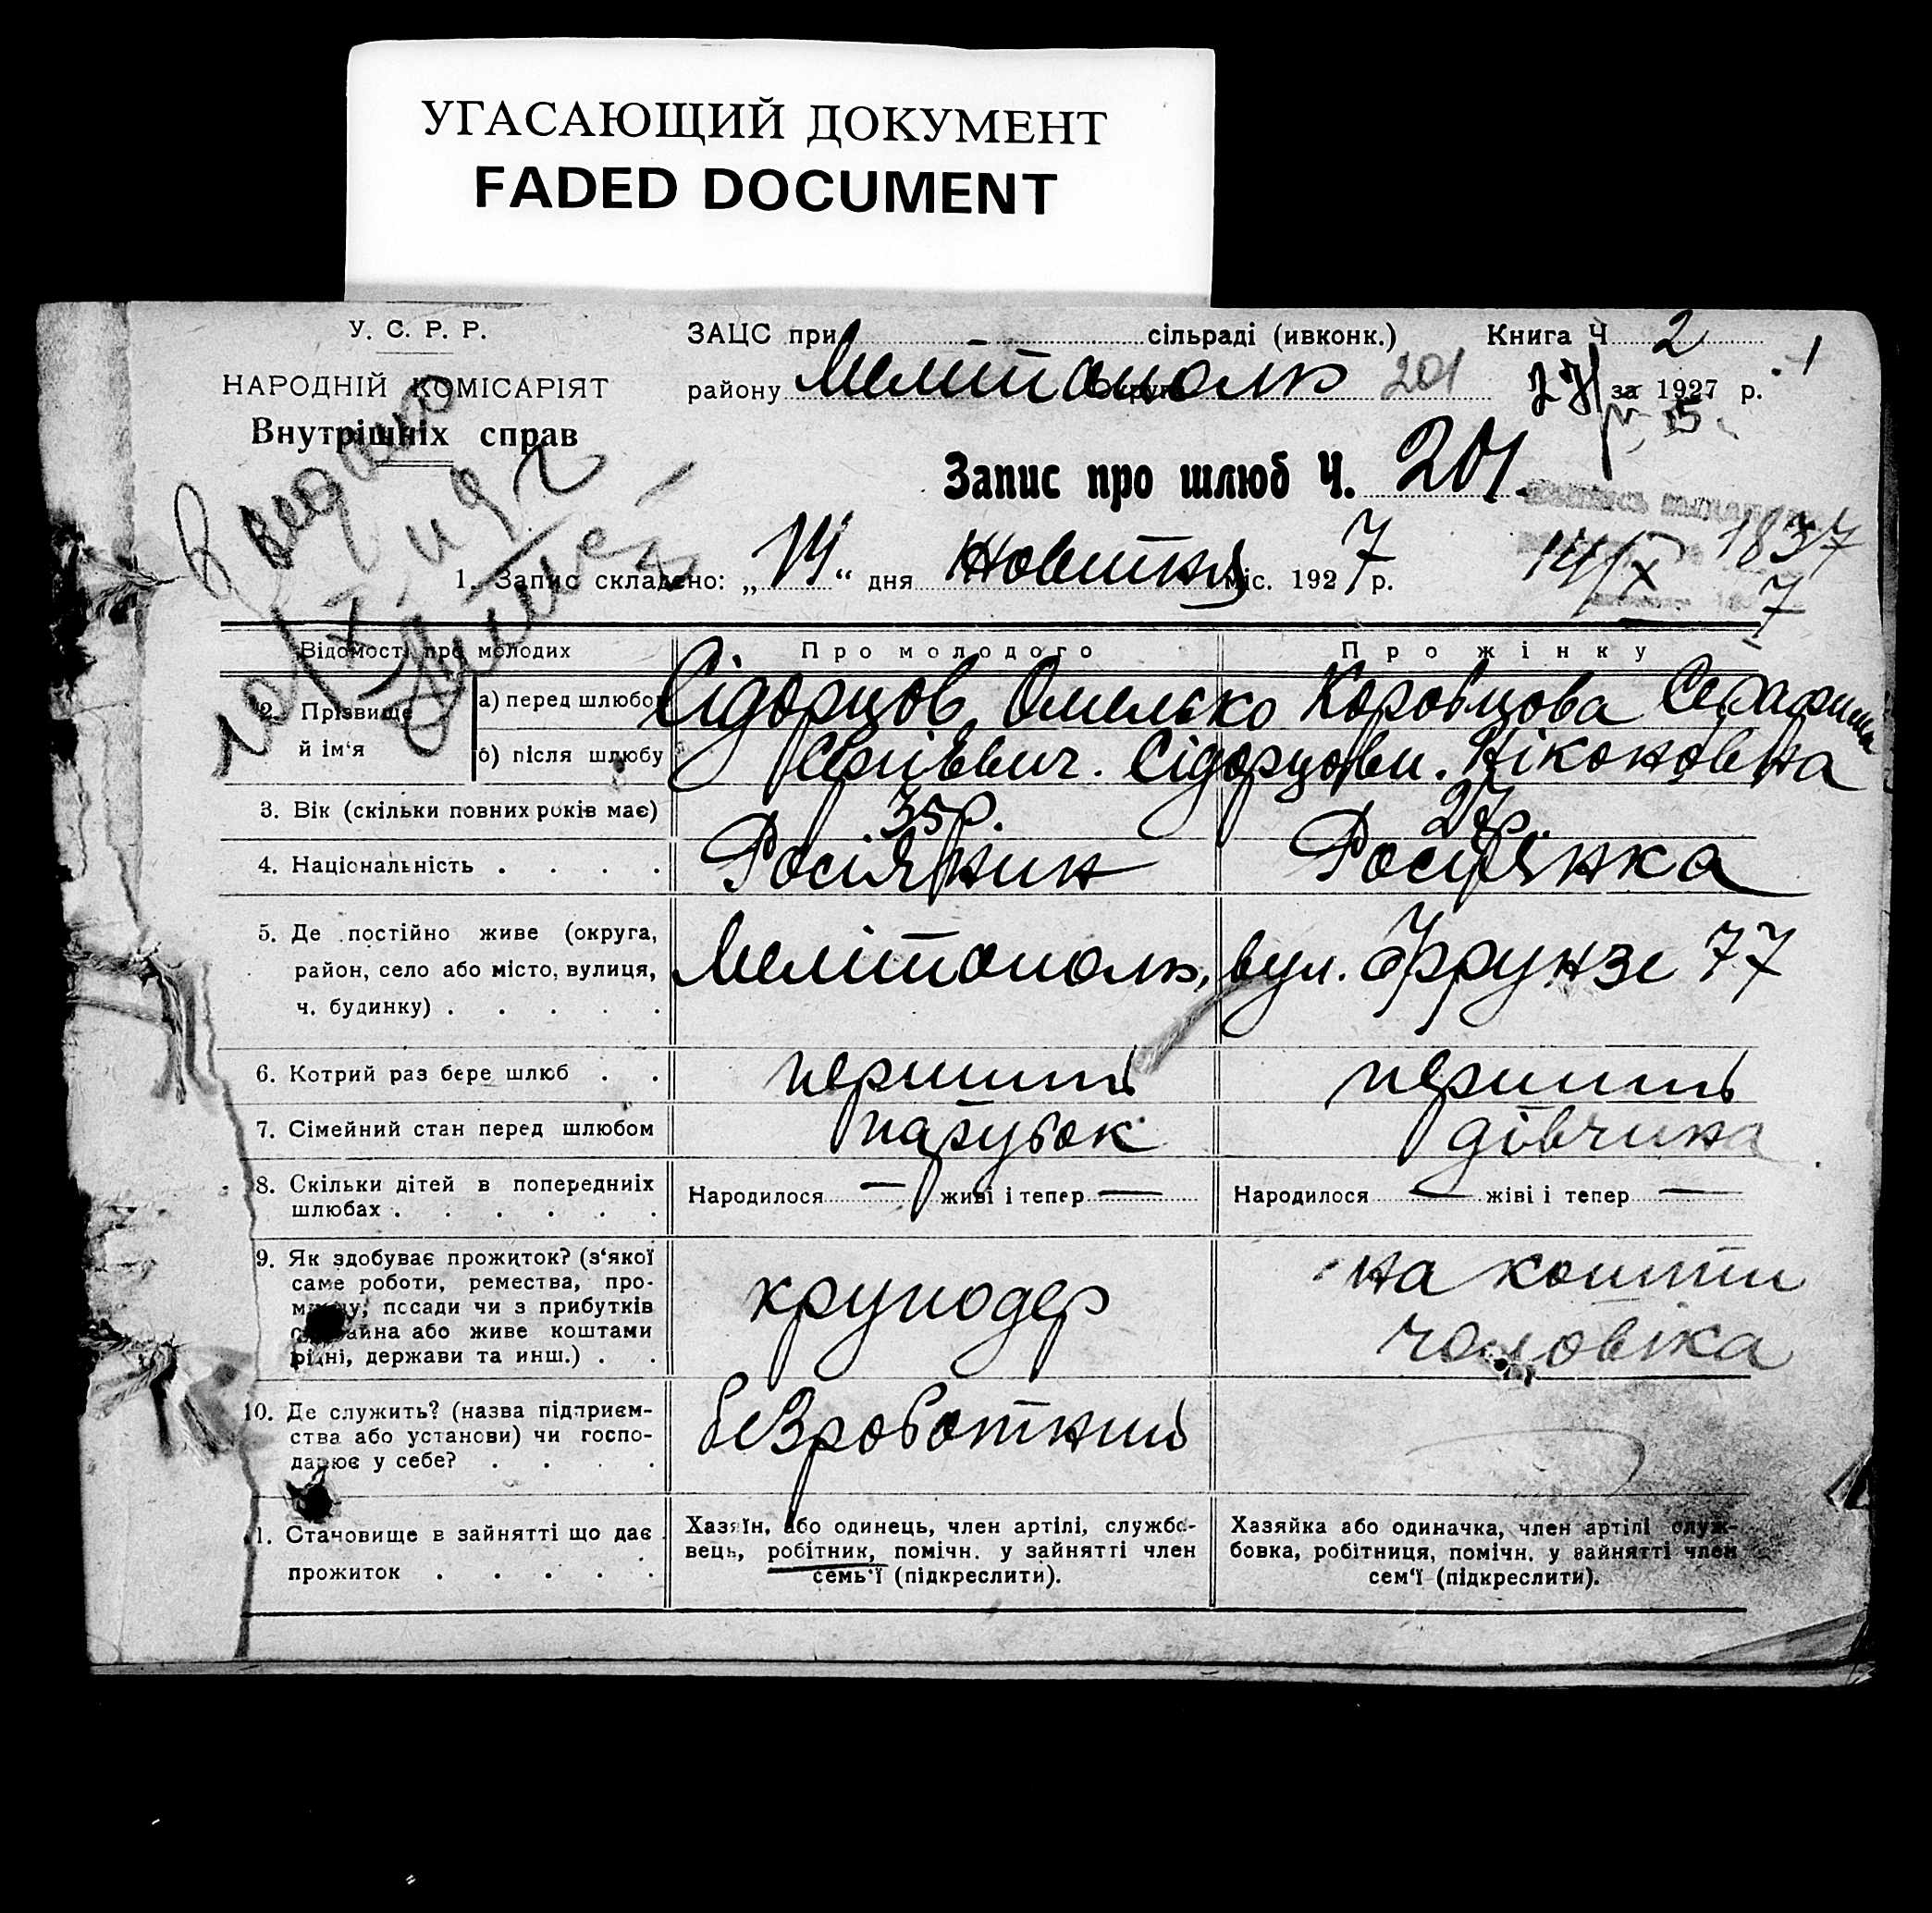 УГАСАЮЩИЙ ДОКУМЕНТ
FADED DOCUMENT
У. С. Р. Р.
НАРОДНІЙ КОМІСАРІЯТ
Внутрішніх справ
ЗАЦС при сільраді (ивконк.) Книга Ч 2
району Мелітополь 201 за 1927 р.
Запис про шлюб Ч. 201.
1. Запис складено: „14“ дня Жовтня міс. 1927 р.
14/X 1837
7
Відомості про молодих Про молодого Про жінку
2. Прізвище й ім‘я
а) перед шлюбом Сідорцов Омелько Коровцова Серафима
б) після шлюбу Сергіввич. Сідорцови. Ніконовна
3. Вік (скільки повних років має) 35 р. 27 р.
4. Національність . . . . Росіянин Росіянка
5. Де постійно живе (округа,
район, село або місто, вулиця,
ч. будинку) . . . . . Мелітополь, вул. Фрунзе 77
6. Котрий раз бере шлюб . . перший перший
7. Сімейний стан перед шлюбом парубок дівчина
8. Скільки дітей в попередниіх
шлюбах . . . . . . Народилося — живі і тепер — Народилося — жіві і тепер —
9. Як здобуває прожиток? (з‘якої
саме роботи, ремества, про-
посади чи з прибутків
або живе коштами
рідні, держави та инш.) . .
круподер
на кошти
чоловіка
10. Де служить? (назва підприєм-
ства або установи) чи госпо-
дарює у себе? . . . .
безроботний
11. Становище в зайнятті що дає
прожиток . . . . .
Хазяїн, або одинець, член артілі, службо-
вець, робітник, помічн. у зайнятті член
семь‘ї (підкреслити).
Хазяйка або одиначка, член артілі служ-
бовка, робітниця, помічн. у зайнятті член
сем‘ї (підкреслити).